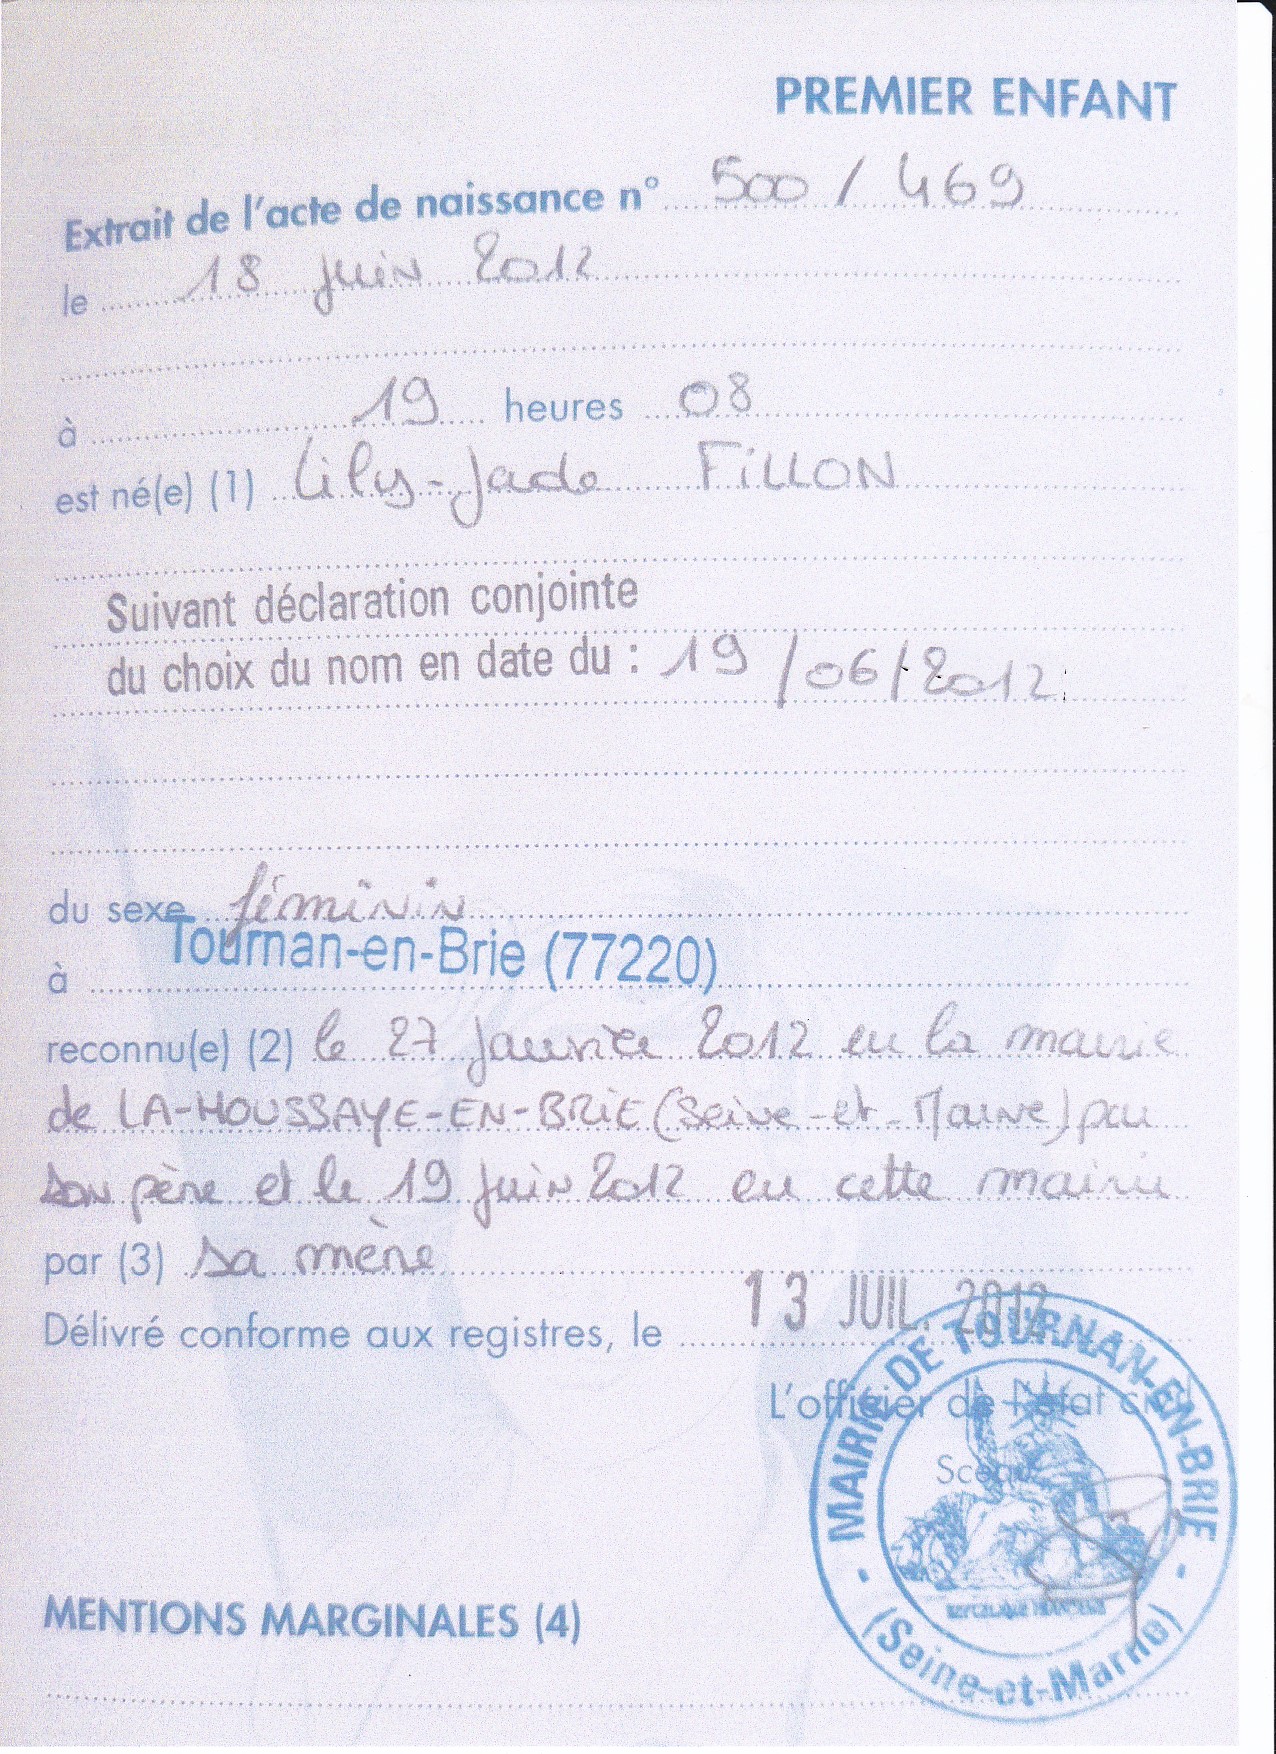 PREMIER ENFANT
Extrait de l'acte de naissance n° 500 / 469
le 18 juin 2012
à 19 heures 08
est né(e) (1) Lily-Jade FiLLON
Suivant déclaration conjointe
du choix du nom en date du : 19/06/2012
du sexe féminin
à Tournan-en-Brie (77220)
reconnu(e) (2) le 27 janvier 2012 en la mairie
de LA-HOUSSAYE-EN-BRiE (Seine-et-Marne) par
son père et le 19 juin 2012 en cette mairie
par (3) sa mère
Délivré conforme aux registres, le 13 JUIL. 2012
L'officier de l'état civil
Sceau
MAIRIE DE TOURNAN-EN-BRIE
RÉPUBLIQUE FRANÇAISE
(Seine-et-Marne)
MENTIONS MARGINALES (4)